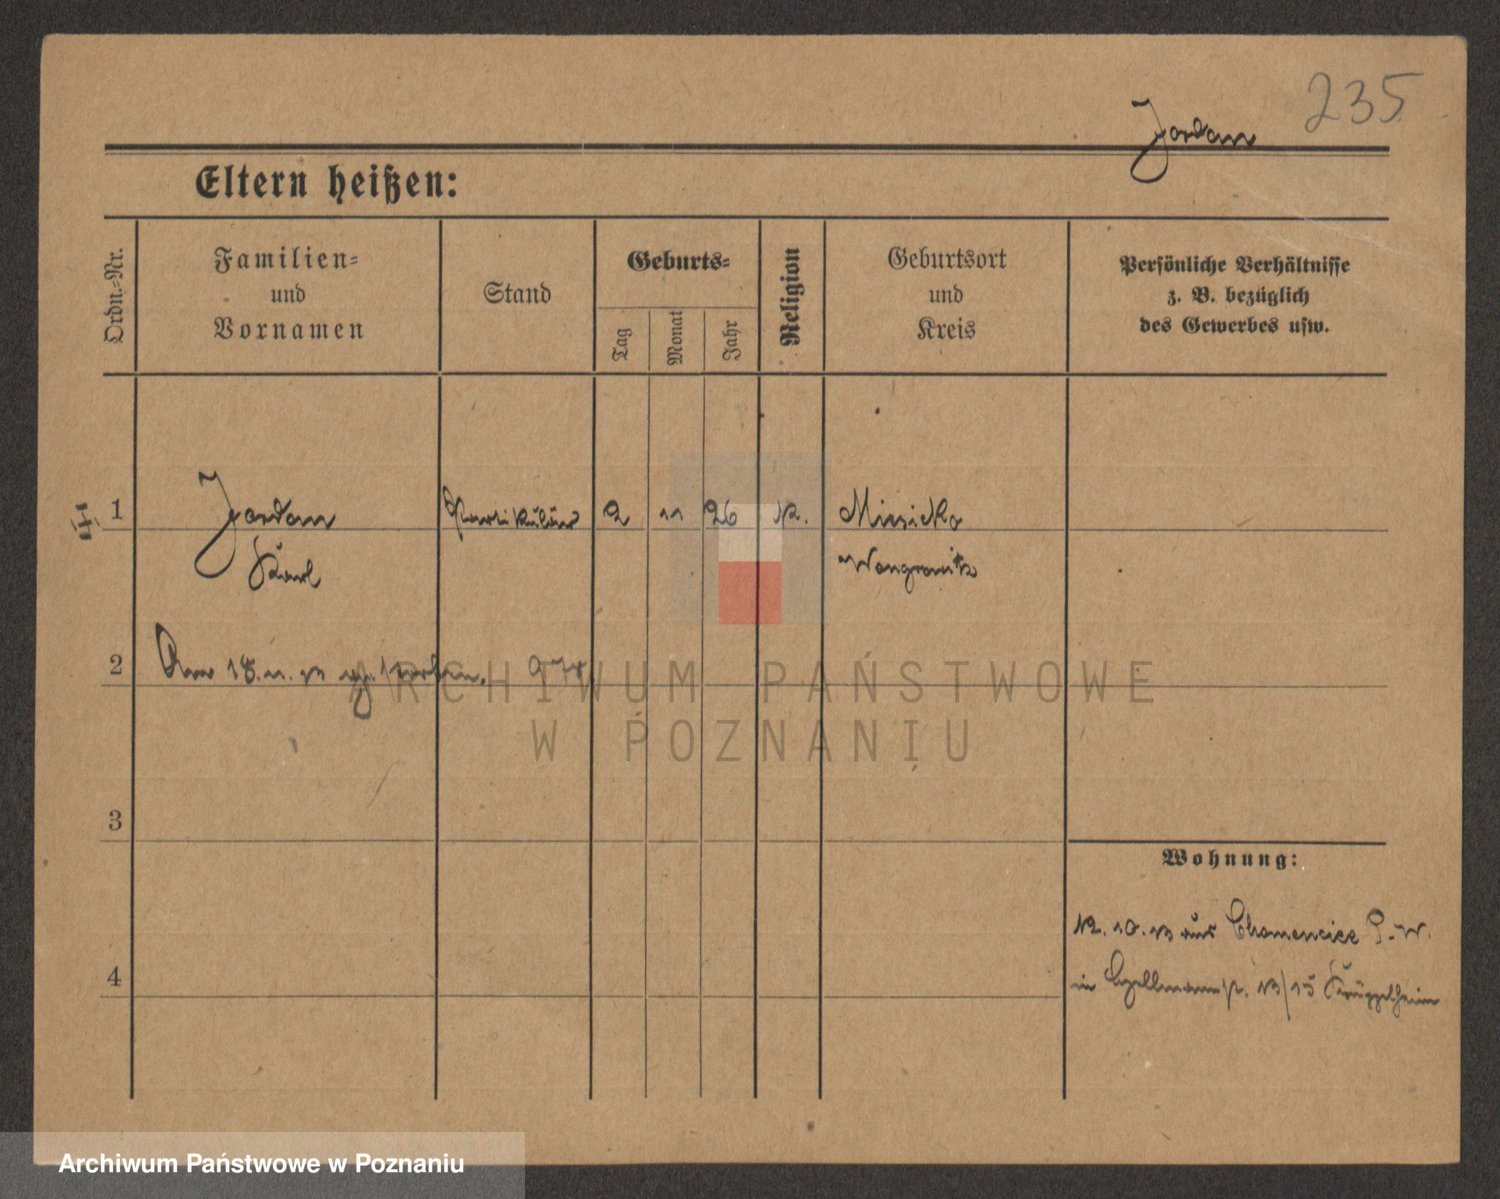 235
Jordan
Eltern heißen:
Ordn.-Nr.
Familien-
und
Vornamen
Stand
Geburts-
Tag
Monat
Jahr
Religion
Geburtsort
und
Kreis
Persönliche Verhältnisse
z. B. bezüglich
des Gewerbes usw.
1
Jordan
Partikulier
2
11
26
K.
Karl
Wongrowitz
2
18. 11.
3
Wohnung:
10. 13 aus
4
in 13/15 Krüppelheim
ARCHIWUM PAŃSTWOWE
W POZNANIU
Archiwum Państwowe w Poznaniu